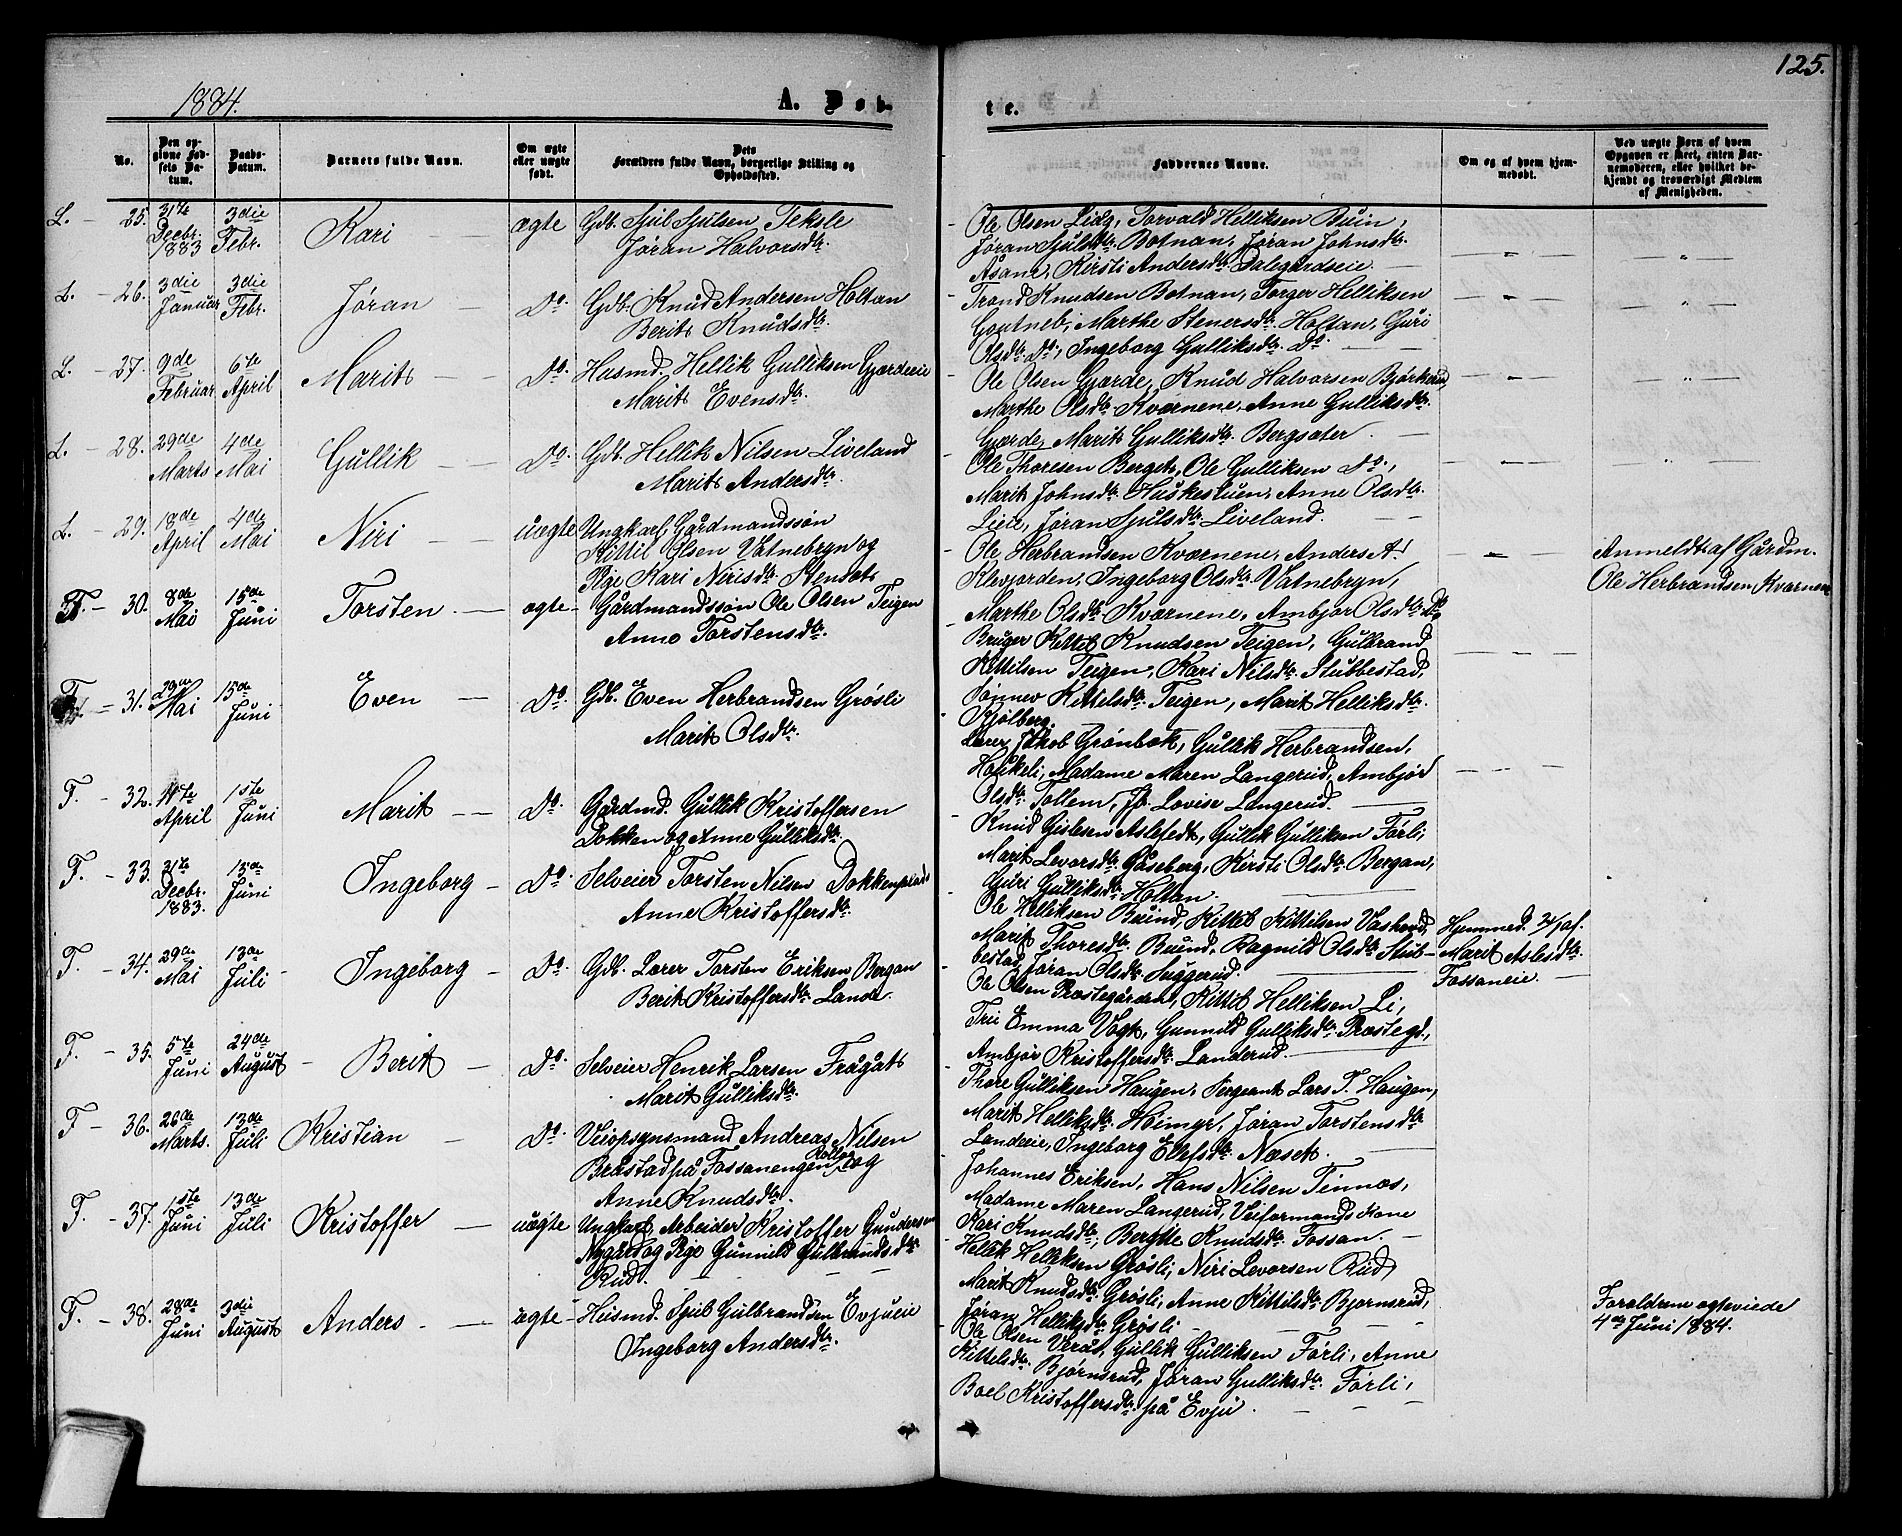 125.
1884.
A. Døb-
te.
No.
Den opgivne Fødsels Datum.
Daabs-Datum.
Barnets fulde Navn.
Om ægte eller uægte født.
Dets Forældres fulde Navn, borgerlige Stilling og Opholdssted.
Faddernes Navne.
Om og af hvem hjemmedøbt.
Ved uægte Børn af hvem Opgaven er skeet, enten Barnemoderen, eller hvilket bekjendt og troværdigt Medlem af Menigheden.
L. - 25. 31te Decbr. 1883 3die Febr. Kari ægte
Gdb. Sjul Sjulsen Teksle
Jøran Halvorsdtr.
Ole Olsen Lid, Torvald Helliksen Buin,
Jøran Sjulsdtr. Botnan, Jøran Johnsdtr.
Åsane, Kirsti Andersdtr. Dalegårdseie.
L. - 26. 3die Januar 3die Febr. Jøran Do.
Gdb. Knud Andersen Holtan
Berit Knudsdtr.
Trond Knudsen Botnan, Torger Helliksen
Goutneb, Marthe Stenersdtr. Holtan, Guri
Olsdtr. Do., Ingeborg Gulliksdtr. Do.
L. - 27. 9de Februar 6te April Marit Do.
Husmd. Hellik Gulliksen Gjærdeeie
Marit Evensdtr.
Ole Olsen Gjærde, Knud Halvorsen Bjørkerud,
Marthe Olsdtr. Kværnene, Anne Gulliksdtr.
Gjærde, Marit Gulliksdtr. Bergsæter.
L. - 28. 29de Marts 4de Mai Gullik Do.
Gdb. Hellik Nilsen Liveland
Marit Andersdtr.
Ole Thoresen Berget, Ole Gulliksen Do.,
Marit Johnsdtr. Huskestuen, Anne Olsdtr.
Lien, Jøran Sjulsdtr. Liveland.
L. - 29. 18de April 4de Mai Niri uægte
Ungkarl, Gårdmandssøn
Kittil Olsen Vatnebryn og
Pige Kari Nirisdtr. Stensæt
Ole Herbrandsen Kværnene, Anders A.
Klevjorden, Ingeborg Olsdtr. Vatnebryn,
Marthe Olsdtr. Kværnene, Ambjør Olsdtr. Do.
Anmeldt af Gårdm.
Ole Herbrandsen Kværnene
F. - 30. 8de Mai 15de Juni Torsten ægte
Gårdmandssøn Ole Olsen Teigen
Anne Torstensdtr.
Bruger Kittel Knudsen Teigen, Gulbrand
Kittilsen Teigen, Kari Nilsdtr. Stubbestad,
Sønnev Kittelsdtr. Teigen, Marit Helliksdtr.
Sjølberg.
F. - 31. 29de Mai 15de Juni Even Do.
Gdb. Even Herbrandsen Grøsli
Marit Olsdtr.
Lærer Jakob Grønbæk, Gullik Herbrandsen,
Haukeli, Madame Maren Langerud, Ambjør
Olsdtr. Tollem, Jfr. Lovise Langerud.
F. - 32. 14te April 1ste Juni Marit Do.
Gårdmd. Gullik Kristoffersen
Dokken og Anne Gulliksdtr.
Knud Gislesen Aslefedt, Gullik Gulliksen Førli,
Marit Levorsdtr. Gåseberg, Kirsti Olsdtr. Bergan,
Guri Gulliksdtr. Holtan.
F. - 33. 31te Decbr. 1883. 15de Juni Ingeborg Do.
Selveier Torsten Nilsen Dokkenplads
Anne Kristoffersdtr.
Ole Helliksen Buind, Kittel Kittilsen Vashovd,
Marit Thoresdtr. Buind, Ragnild Olsdtr. Stub-
bestad, Jøran Olsdtr. Juggerud.
Hjemmed. 3/1 af.
Marit Aslesdtr.
Fossaneie.
F. - 34. 29de Mai 13de Juli Ingeborg Do.
Gdb. Lærer Torsten Eriksen Bergan
Berit Kristoffersdtr. Lande.
Ole Olsen Præstegården, Kittel Helliksen Li,
Frii Emma Vogt, Gunnild Gulliksdtr. Præstegd.,
Ambjør Kristoffersdtr. Landerud.
F. - 35. 5te Juni 24de August Berit Do.
Selveier Henrik Larsen Frågåt
Marit Gulliksdtr.
Thore Gulliksen Haugen, Sergeant Lars T. Haugen,
Marit Helliksdtr. Heimyr, Jøran Torstensdtr.
Landeeie, Ingeborg Elefsdtr. Næset.
F. - 36. 26de Marts. 13de Juli Kristian Do.
Veiopsynsmand Andreas Nilsen
Bråstad på Fossanengen og
Anne Knudsdtr.
Johannes Eriksen, Hans Nilsen Tinnæs,
Madame Maren Langerud, Veiformands Kone
Kari Knudsdtr., Bergite Knudsdtr. Fossan.
F. - 37. 1ste Juni 13de Juli Kristoffer uægte
Ungkarl Arbeider Kristoffer Gundersen
Nygård og Pige Gunnild Gulbrandsdtr.
Rud.
Hellik Helliksen Grøsli, Niri Levorsen Rud,
Marit Knudsdtr. Grøsli, Anne Kittilsdtr. Bjørnsrud,
Jøran Helliksdtr. Grøsli
F. - 38. 28de Juni 3die August Anders ægte
Husmd. Sjul Gulbrandsen Evjueie
Ingeborg Andersdtr.
Ole Olsen Veråt, Gullik Gulliksen Førli, Anne
Kittelsdtr. Bjørnsrud, Jøran Gulliksdtr. Førli,
Boel Kristoffersdtr. på Evju.
Forældrene ægteviede
4de Juni 1884.